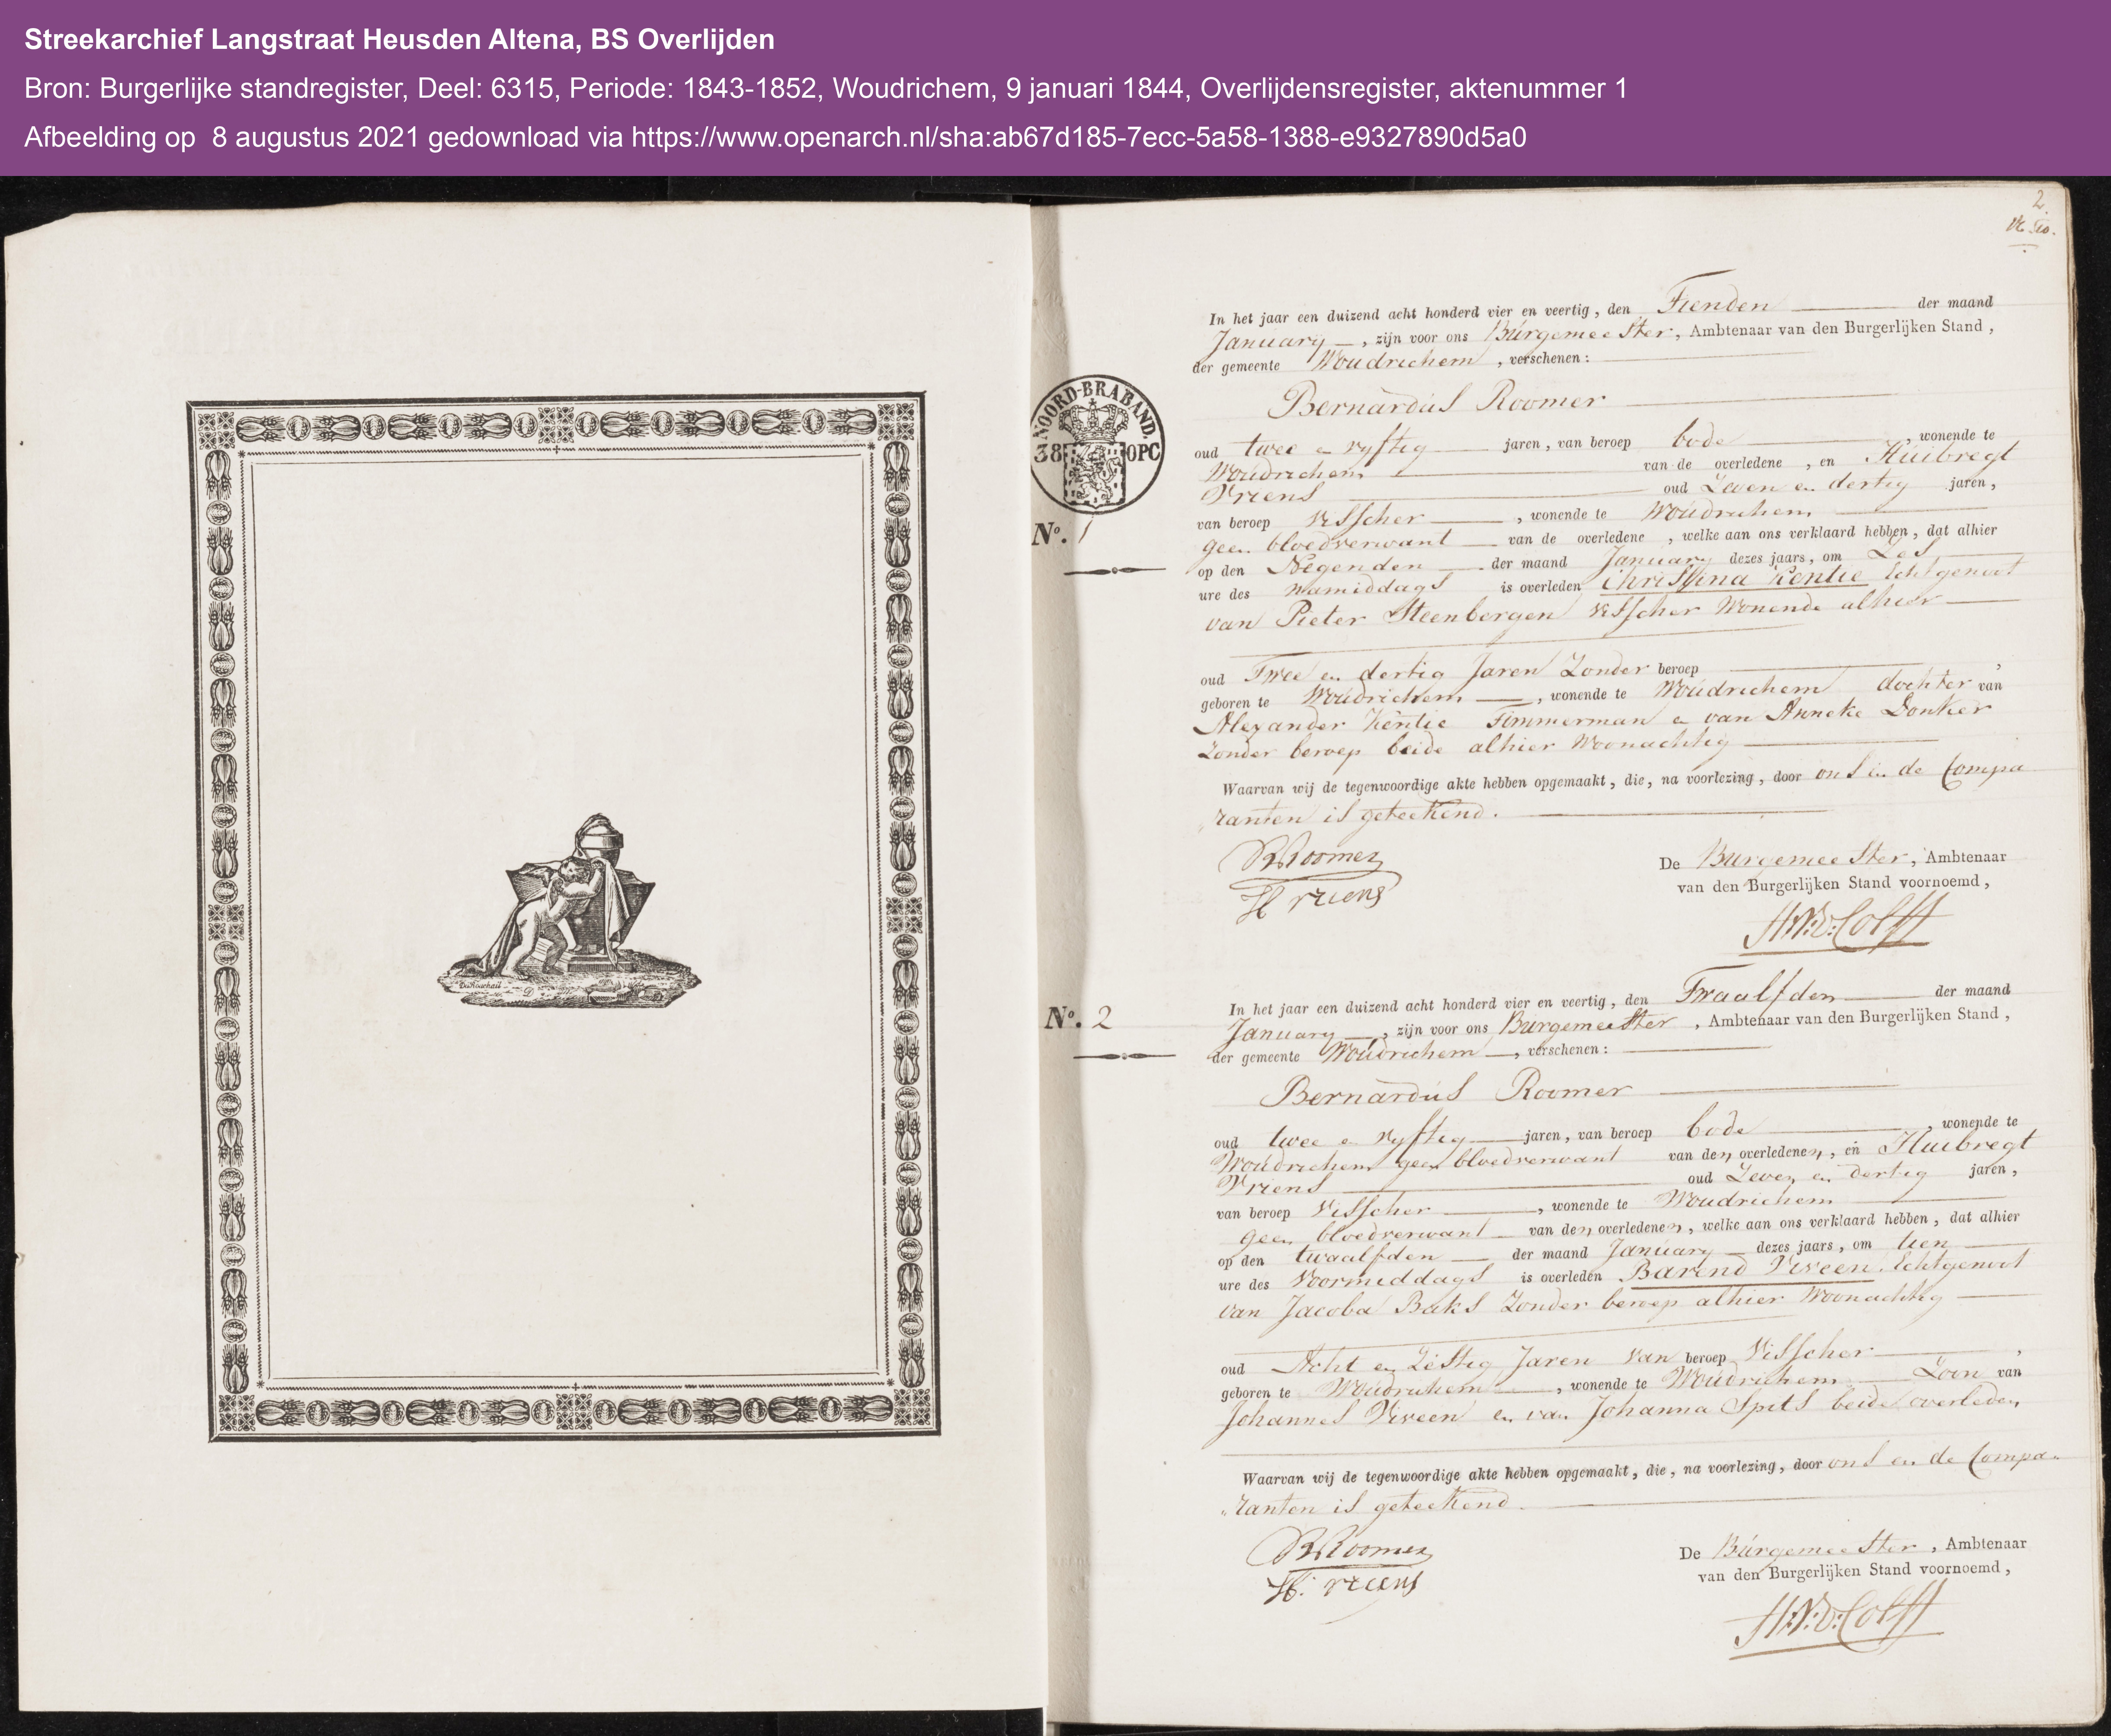 Streekarchief Langstraat Heusden Altena, BS Overlijden
Bron: Burgerlijke standregister, Deel: 6315, Periode: 1843-1852, Woudrichem, 9 januari 1844, Overlijdensregister, aktenummer 1
Afbeelding op 8 augustus 2021 gedownload via https://www.openarch.nl/sha:ab67d185-7ecc-5a58-1388-e9327890d5a0
2
In het jaar een duizend acht honderd vier en veertig, den Tienden der maand
January, zijn voor ons Burgemeester, Ambtenaar van den Burgerlijken Stand,
der gemeente Woudrichem, verschenen:
NOORD-BRABAND.
38 OPC
Bernardus Roomer
oud twee en vyftig jaren, van beroep bode, wonende te
Woudrichem van de overledene, en Huibregt
Vriens oud Zeven en dertig jaren,
No. 1
van beroep Visscher, wonende te Woudrichem
geen bloedverwant van de overledene, welke aan ons verklaard hebben, dat alhier
op den Negenden der maand January dezes jaars, om Zes
ure des namiddags is overleden Christina Kentie Echtgenoot
van Pieter Steenbergen Visscher Wonende alhier
oud Twee en dertig Jaren Zonder beroep,
geboren te Woudrichem, wonende te Woudrichem dochter van
Alexander Kentie Timmerman en van Anneke Donker
Zonder beroep beide alhier Woonachtig
Waarvan wij de tegenwoordige akte hebben opgemaakt, die, na voorlezing, door ons en de Compa
ranten is geteekend.
BRoomer
H Vriens
De Burgemeester, Ambtenaar
van den Burgerlijken Stand voornoemd,
No. 2
In het jaar een duizend acht honderd vier en veertig, den Twaalfden der maand
January, zijn voor ons Burgemeester, Ambtenaar van den Burgerlijken Stand,
der gemeente Woudrichem, verschenen:
Bernardus Roomer
oud twee en vyftig jaren, van beroep bode, wonende te
Woudrichem geen bloedverwant van den overledenen, en Huibregt
Vriens oud Zeven en dertig jaren,
van beroep Visscher, wonende te Woudrichem
geen bloedverwant van den overledenen, welke aan ons verklaard hebben, dat alhier
op den twaalfden der maand January dezes jaars, om tien
ure des Voormiddags is overleden Barend Viveen. Echtgenoot
van Jacoba Baks Zonder beroep alhier Woonachtig
oud Acht en Zestig Jaren van beroep Visscher,
geboren te Woudrichem, wonende te Woudrichem Zoon van
Johannes Viveen en van Johanna Spits beide overleden
Waarvan wij de tegenwoordige akte hebben opgemaakt, die, na voorlezing, door ons en de Compa-
ranten is geteekend.
BRoomer
H. Vriens
De Burgemeester, Ambtenaar
van den Burgerlijken Stand voornoemd,